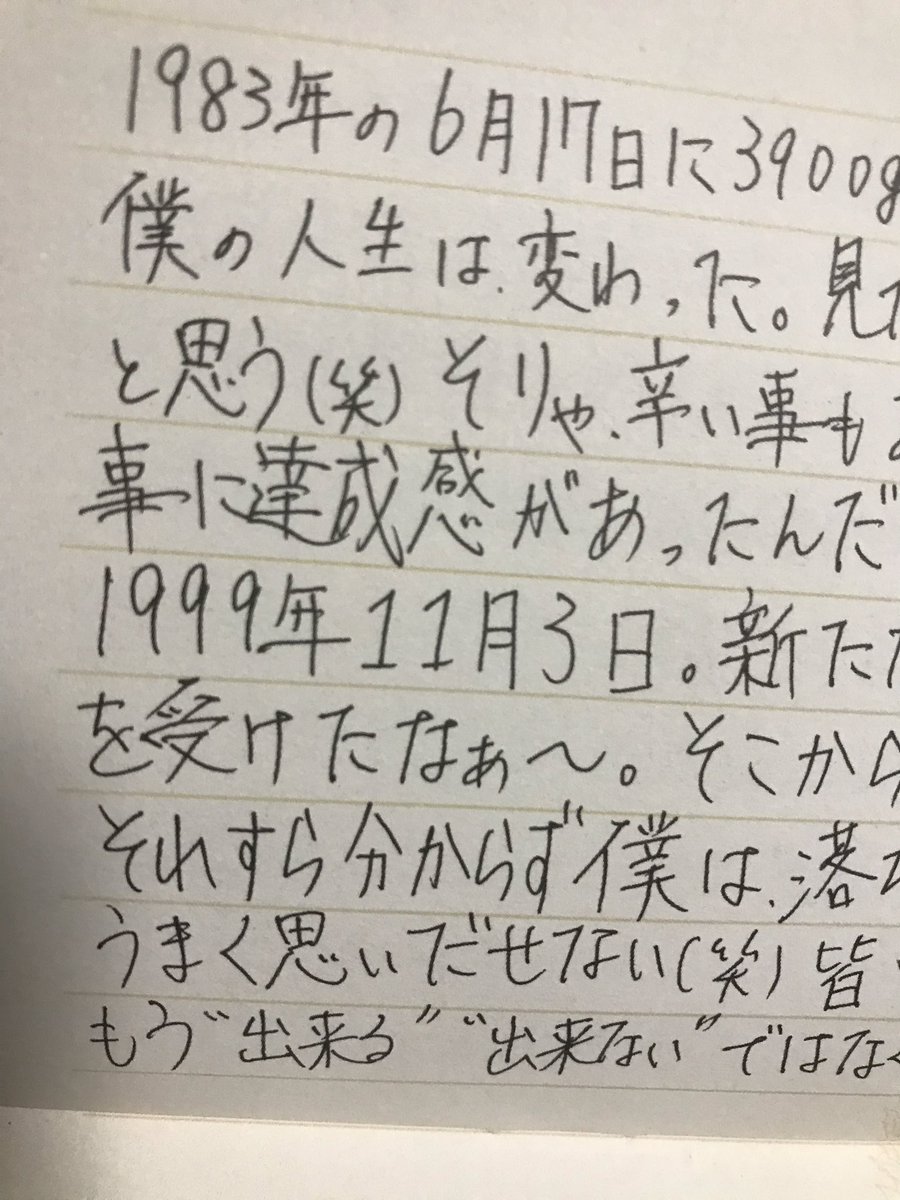 1983年の6月17日に3900g
僕の人生は、変わった。見
と思う(笑)そりゃ、辛い事も
事に達成感があったんだ
1999年11月3日。新た
を受けたなぁ〜。そこから
それすら分からず僕は、落
うまく思いだせない(笑)皆
もう"出来る""出来ない"ではなく